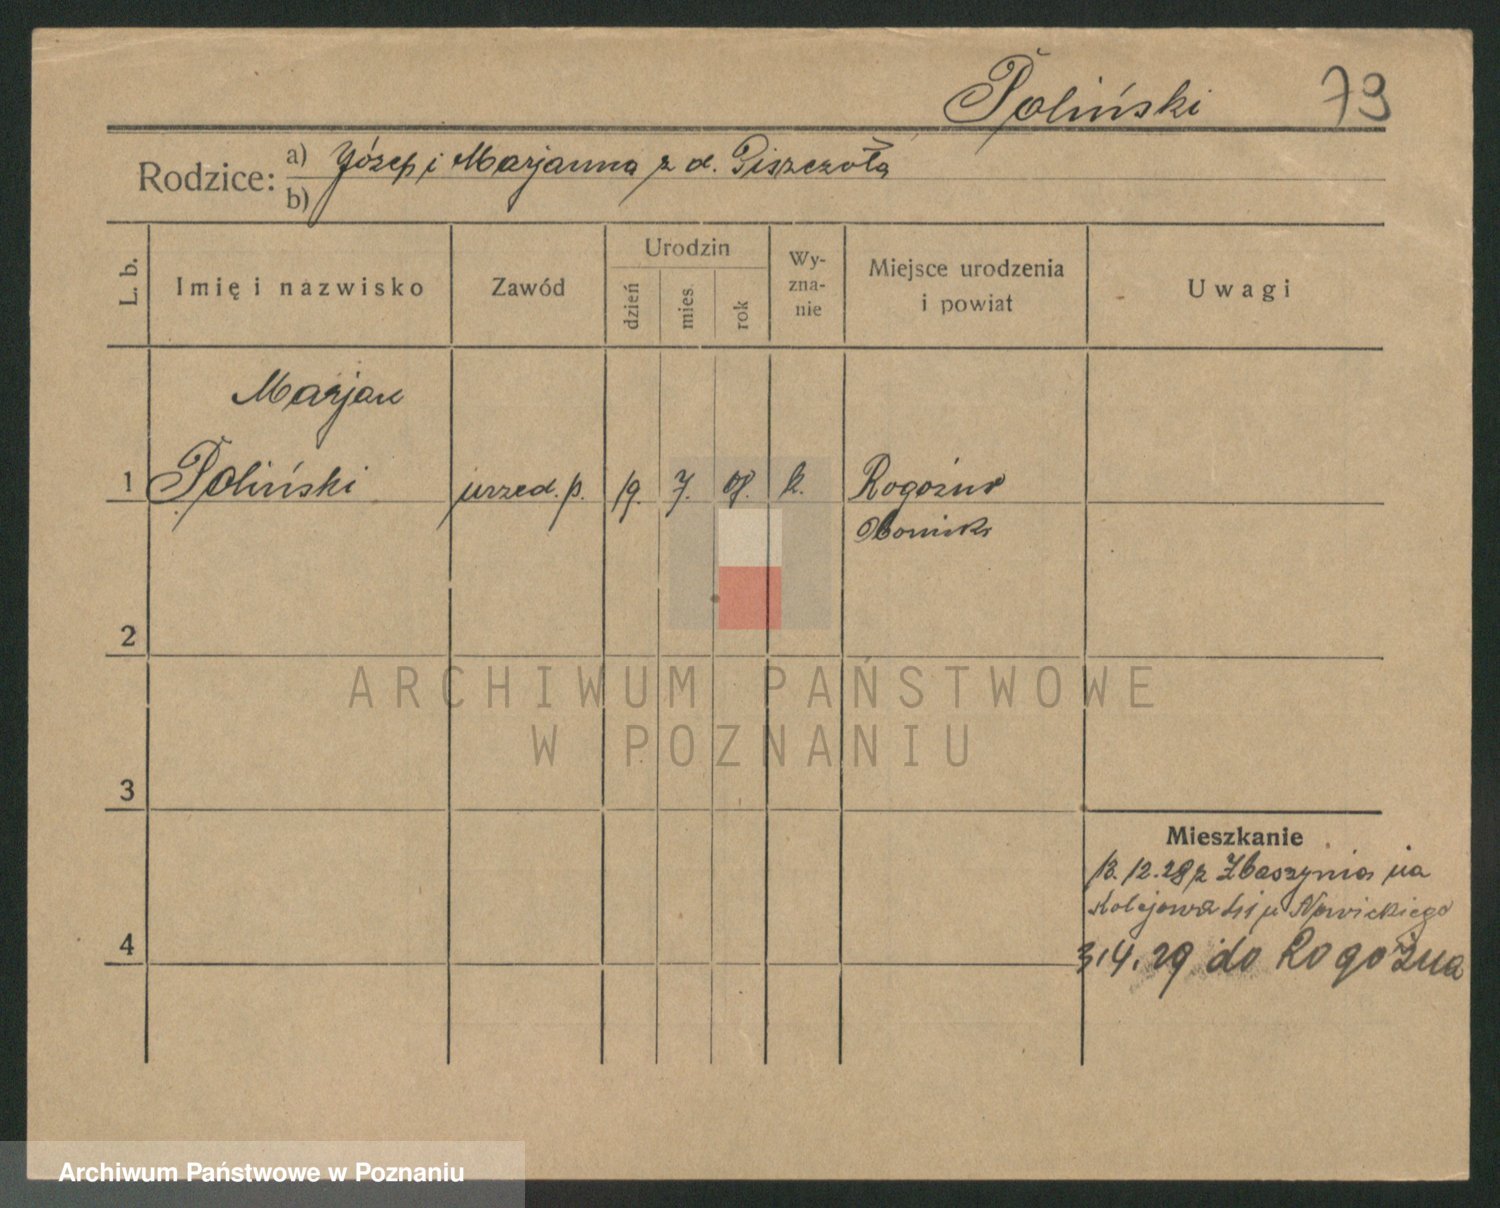 Poliński 73
Rodzice: a) Józef i Marjanna z d. Piszczoła
b)
L. b. Imię i nazwisko Zawód Urodzin dzień mies. rok Wy-zna-nie Miejsce urodzenia i powiat Uwagi
Marjan
1 Poliński urzęd. p. 19. 7. 08. k. Rogoźno
Oborniki
2
ARCHIWUM PAŃSTWOWE
W POZNANIU
3
Mieszkanie
13.12.28 z Zbąszynia na
Kolejowa u Nowickiego
4
3.4.29 do Rogoźna
Archiwum Państwowe w Poznaniu